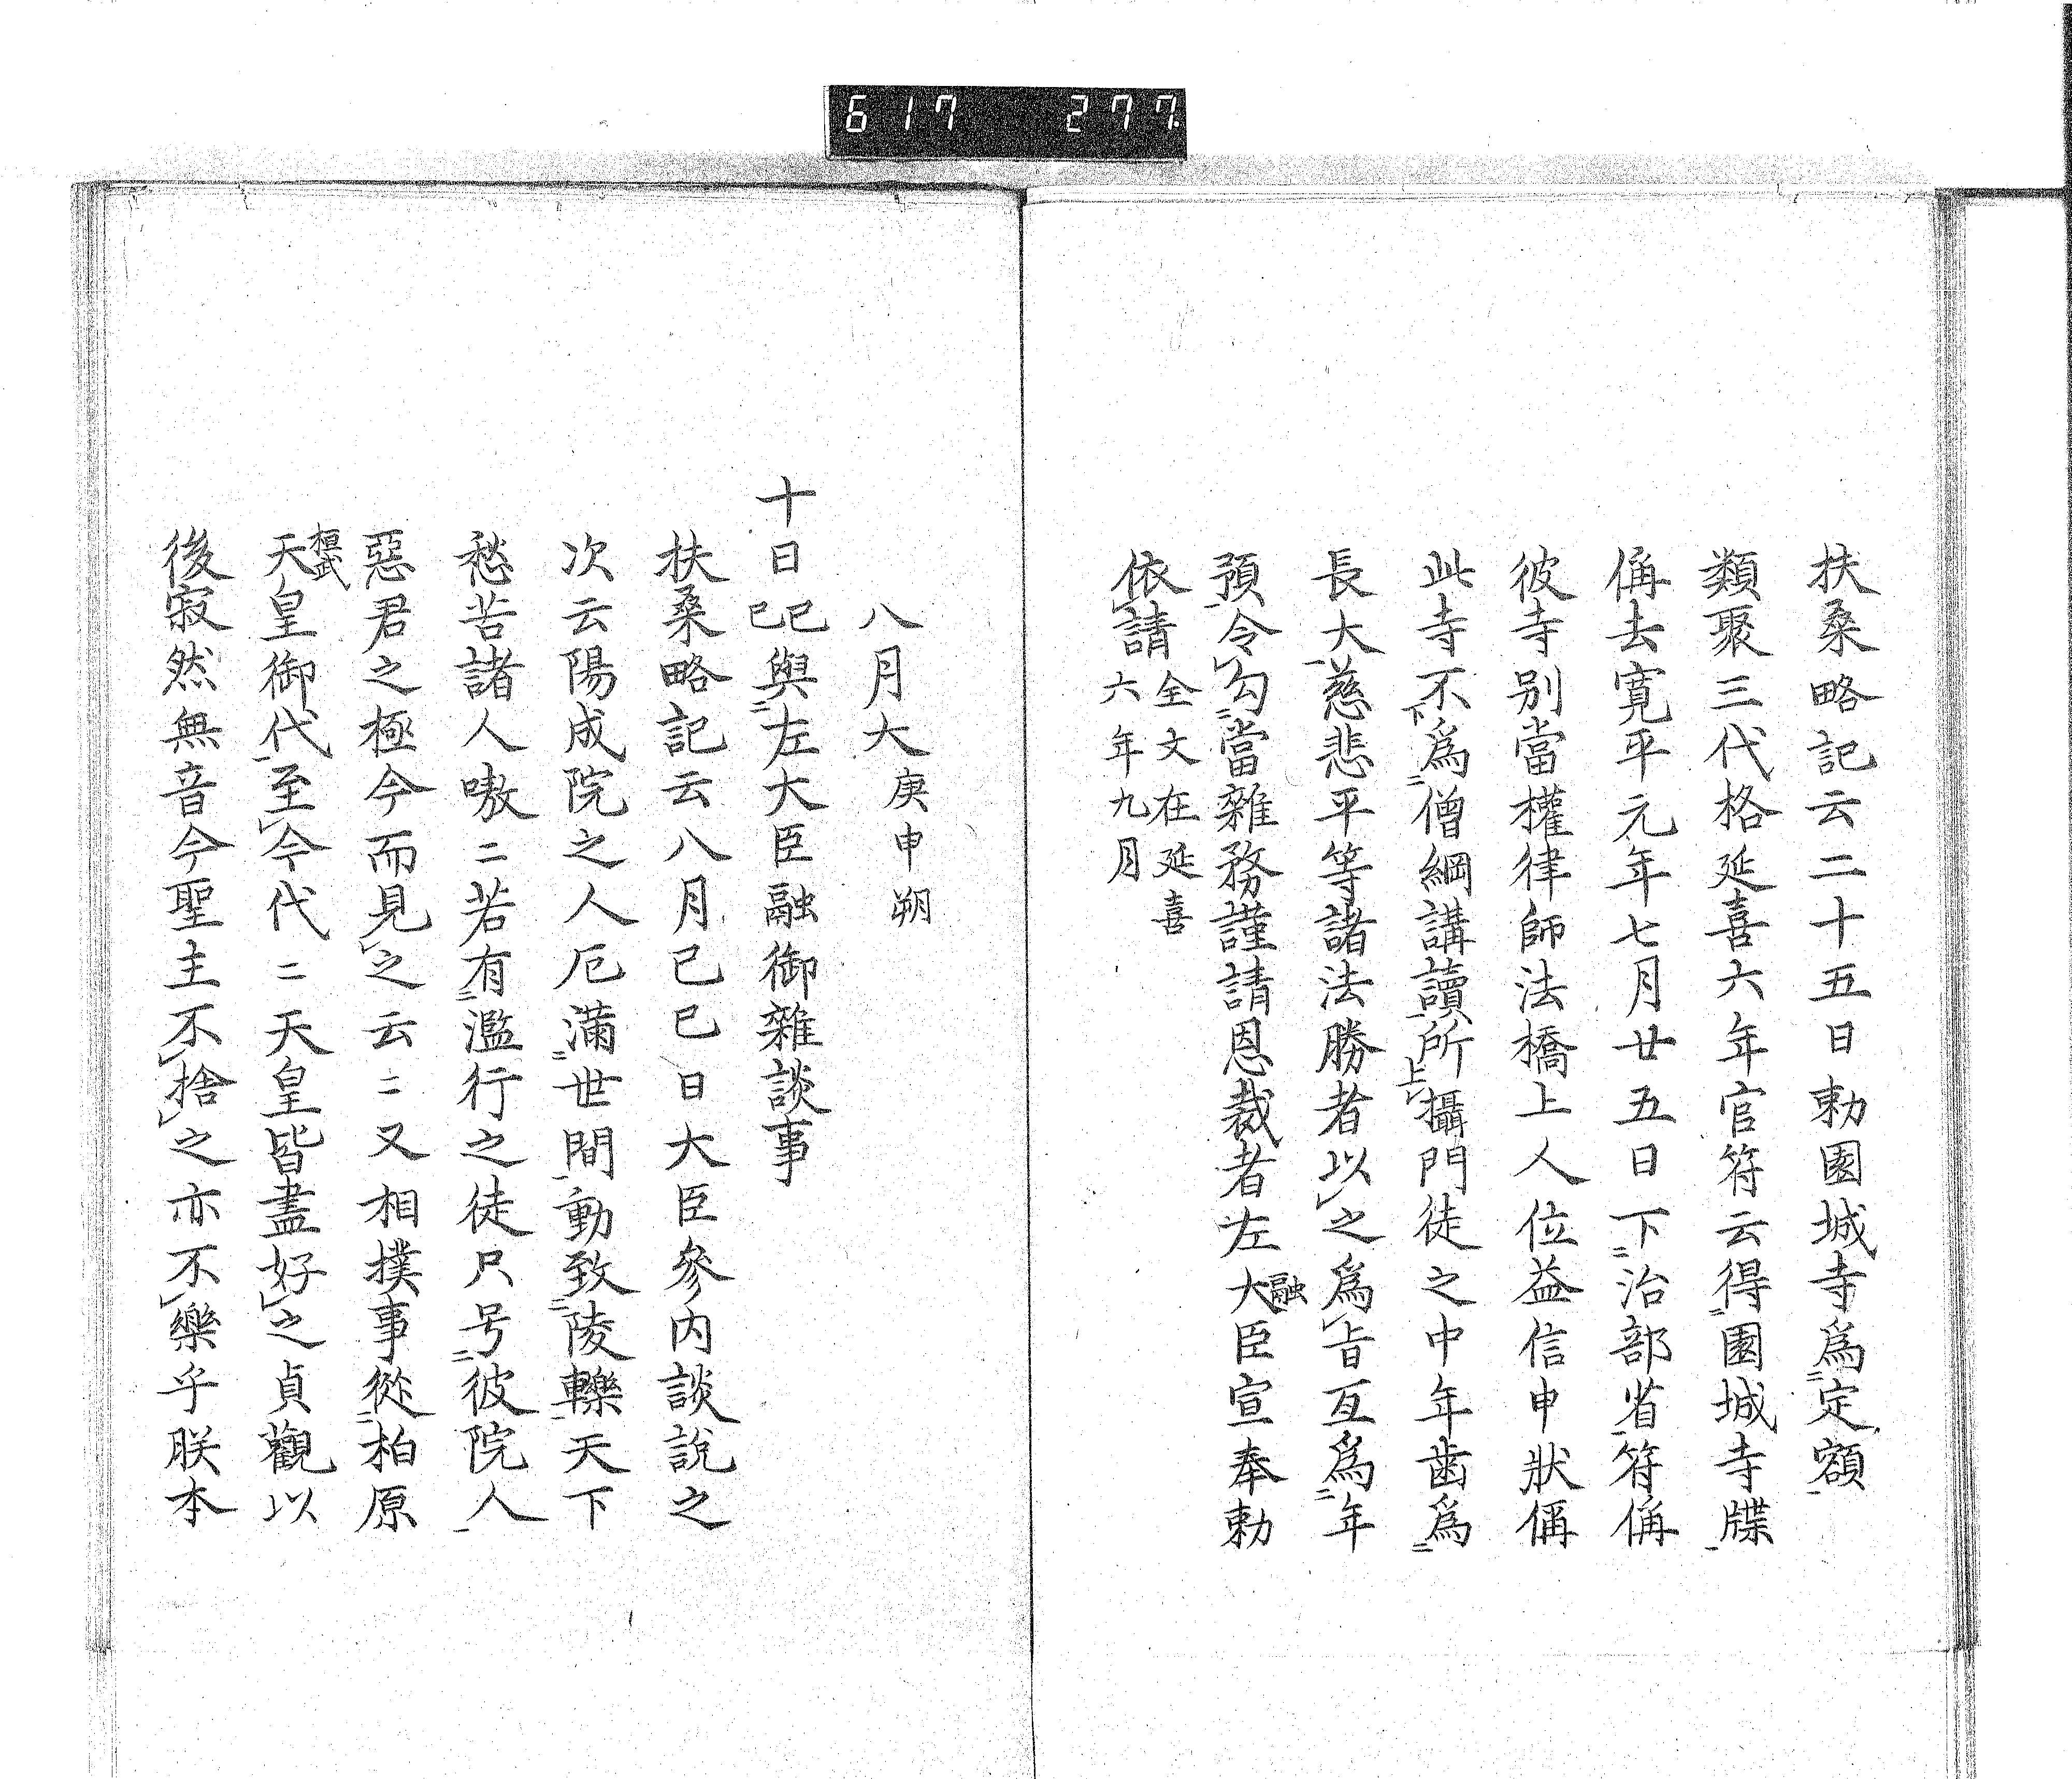 617 277.
扶桑略記云二十五日勅園城寺爲定額
類聚三代格延喜六年官符云得園城寺牒
偁去寛平元年七月廿五日下治部省符偁
彼寺別當權律師法橋上人位益信申狀偁
此寺不爲僧綱講讀所攝門徒之中年齒爲
長大慈悲平等諸法勝者以之爲旨互爲年
預令勾當雜務謹請恩裁者左大臣融宣奉勅
依請全文在延喜六年九月
八月大庚申朔
十日己巳與左大臣融御雜談事
扶桑略記云八月己巳日大臣參內談說之
次云陽成院之人厄滿世間動致陵轢天下
愁苦諸人嗷二若有濫行之徒只号彼院人
惡君之極今而見之云二又相撲事從柏原
天皇桓武御代至今代二天皇皆盡好之貞觀以
後寂然無音今聖主不捨之亦不樂乎朕本